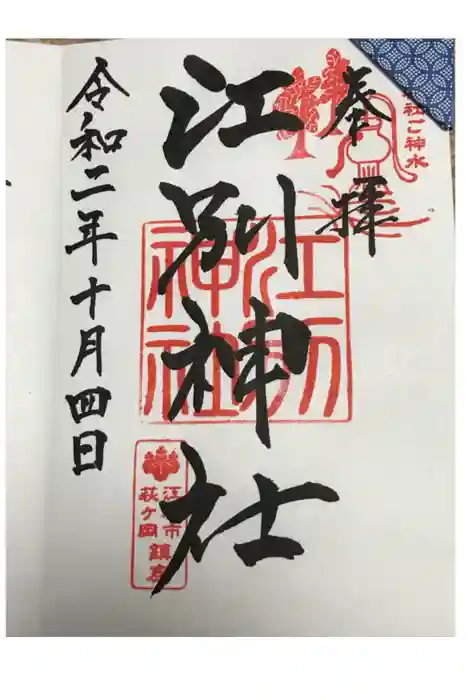 奉拝
社ご神水
江別神社
江別神社
江別市
萩ヶ岡
鎮座
令和二年十月四日